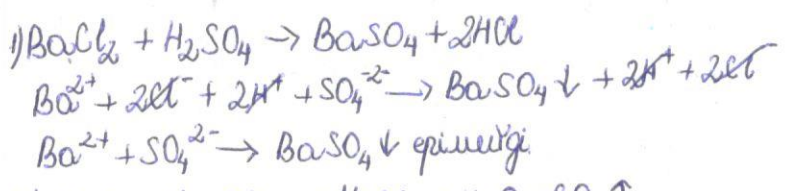 1) BaCl₂ + H₂SO₄ → BaSO₄ + 2HCl
Ba²⁺ + 2Cl⁻ + 2H⁺ + SO₄²⁻ → BaSO₄↓ + 2H⁺ + 2Cl⁻
Ba²⁺ + SO₄²⁻ → BaSO₄↓ ерімейді